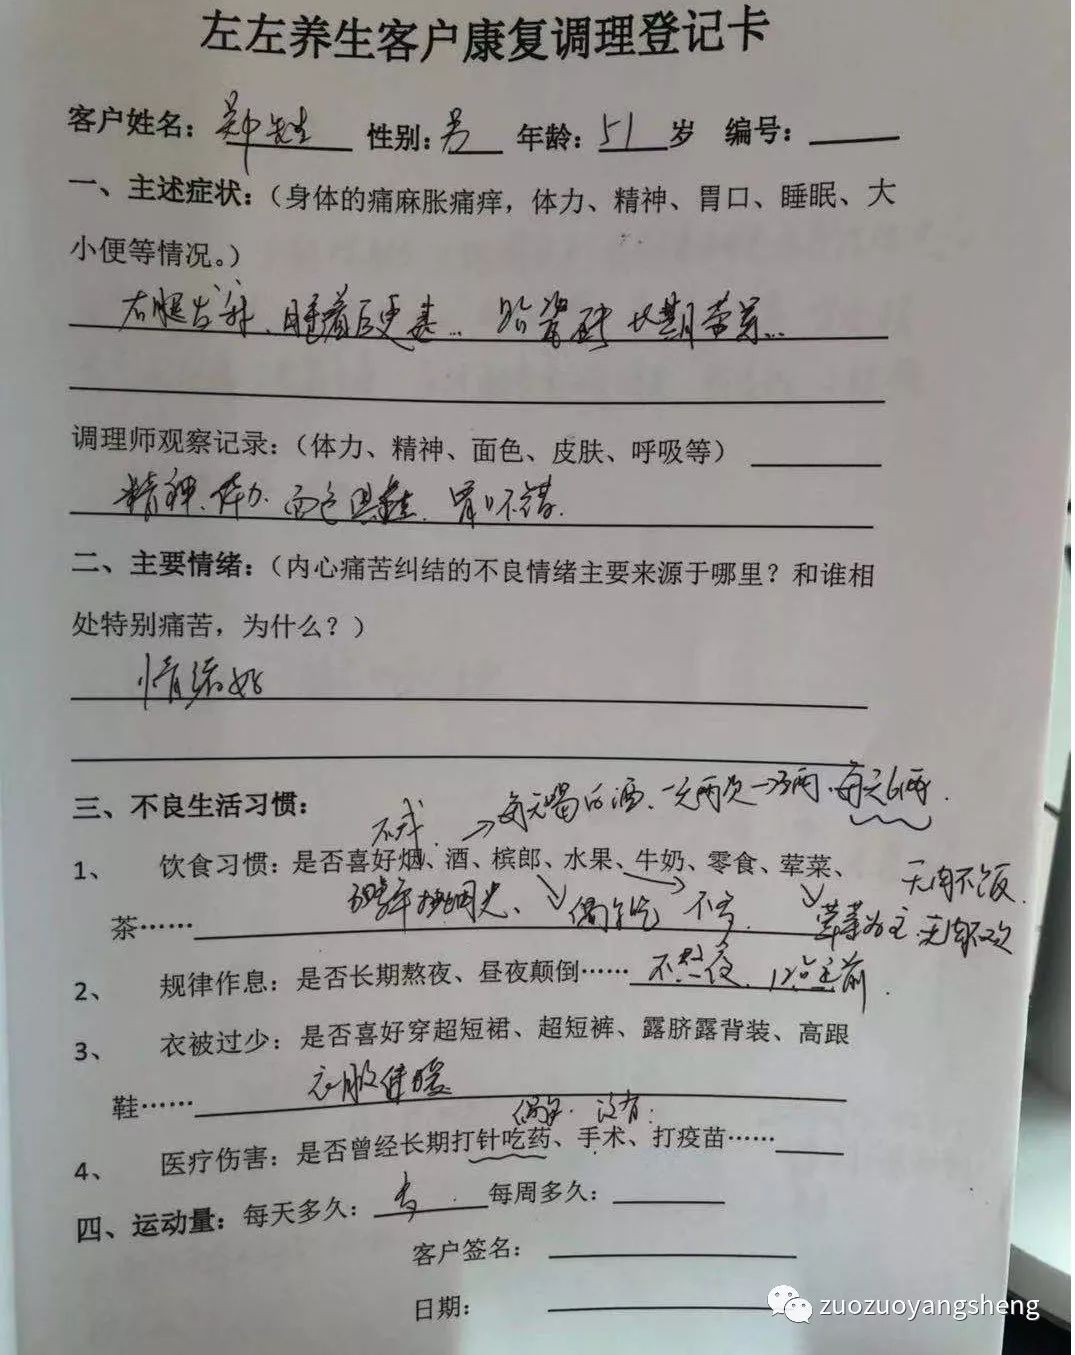 左左养生客户康复调理登记卡
客户姓名：郑先生 性别：男 年龄：51岁 编号：
一、主述症状：（身体的痛麻胀痛痒，体力、精神、胃口、睡眠、大
小便等情况。）
右腿发麻、睡着后更甚… 贴瓷砖 长期劳累…
调理师观察记录：（体力、精神、面色、皮肤、呼吸等）
精神、体力、面色俱佳、胃口不错.
二、主要情绪：（内心痛苦纠结的不良情绪主要来源于哪里？和谁相
处特别痛苦，为什么？）
情绪好
三、不良生活习惯：
不戒. → 每天喝白酒、一天两次一次3两、每天6两.
1、 饮食习惯：是否喜好烟、酒、槟郎、水果、牛奶、零食、荤菜、
无肉不饭.
茶…… 偶尔吃 不多. 荤菜为主.无肉不欢
2、 规律作息：是否长期熬夜、昼夜颠倒…… 不熬夜、12点之前.
3、 衣被过少：是否喜好穿超短裙、超短裤、露脐露背装、高跟
鞋…… 衣服保暖
偶尔. 没有.
4、 医疗伤害：是否曾经长期打针吃药、手术、打疫苗……
四、运动量：每天多久： 每周多久：
客户签名：
日期：
zuozuoyangsheng